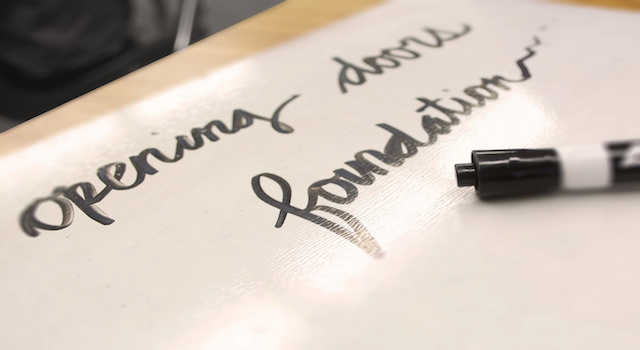 opening doors
foundation